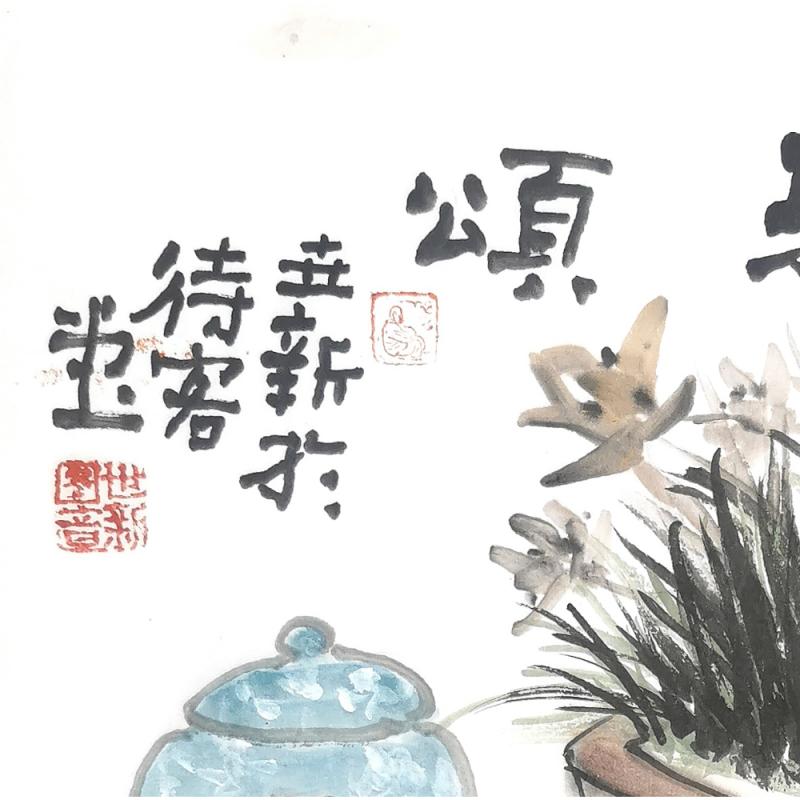 頌
世新於
待客
堂
世新圖章